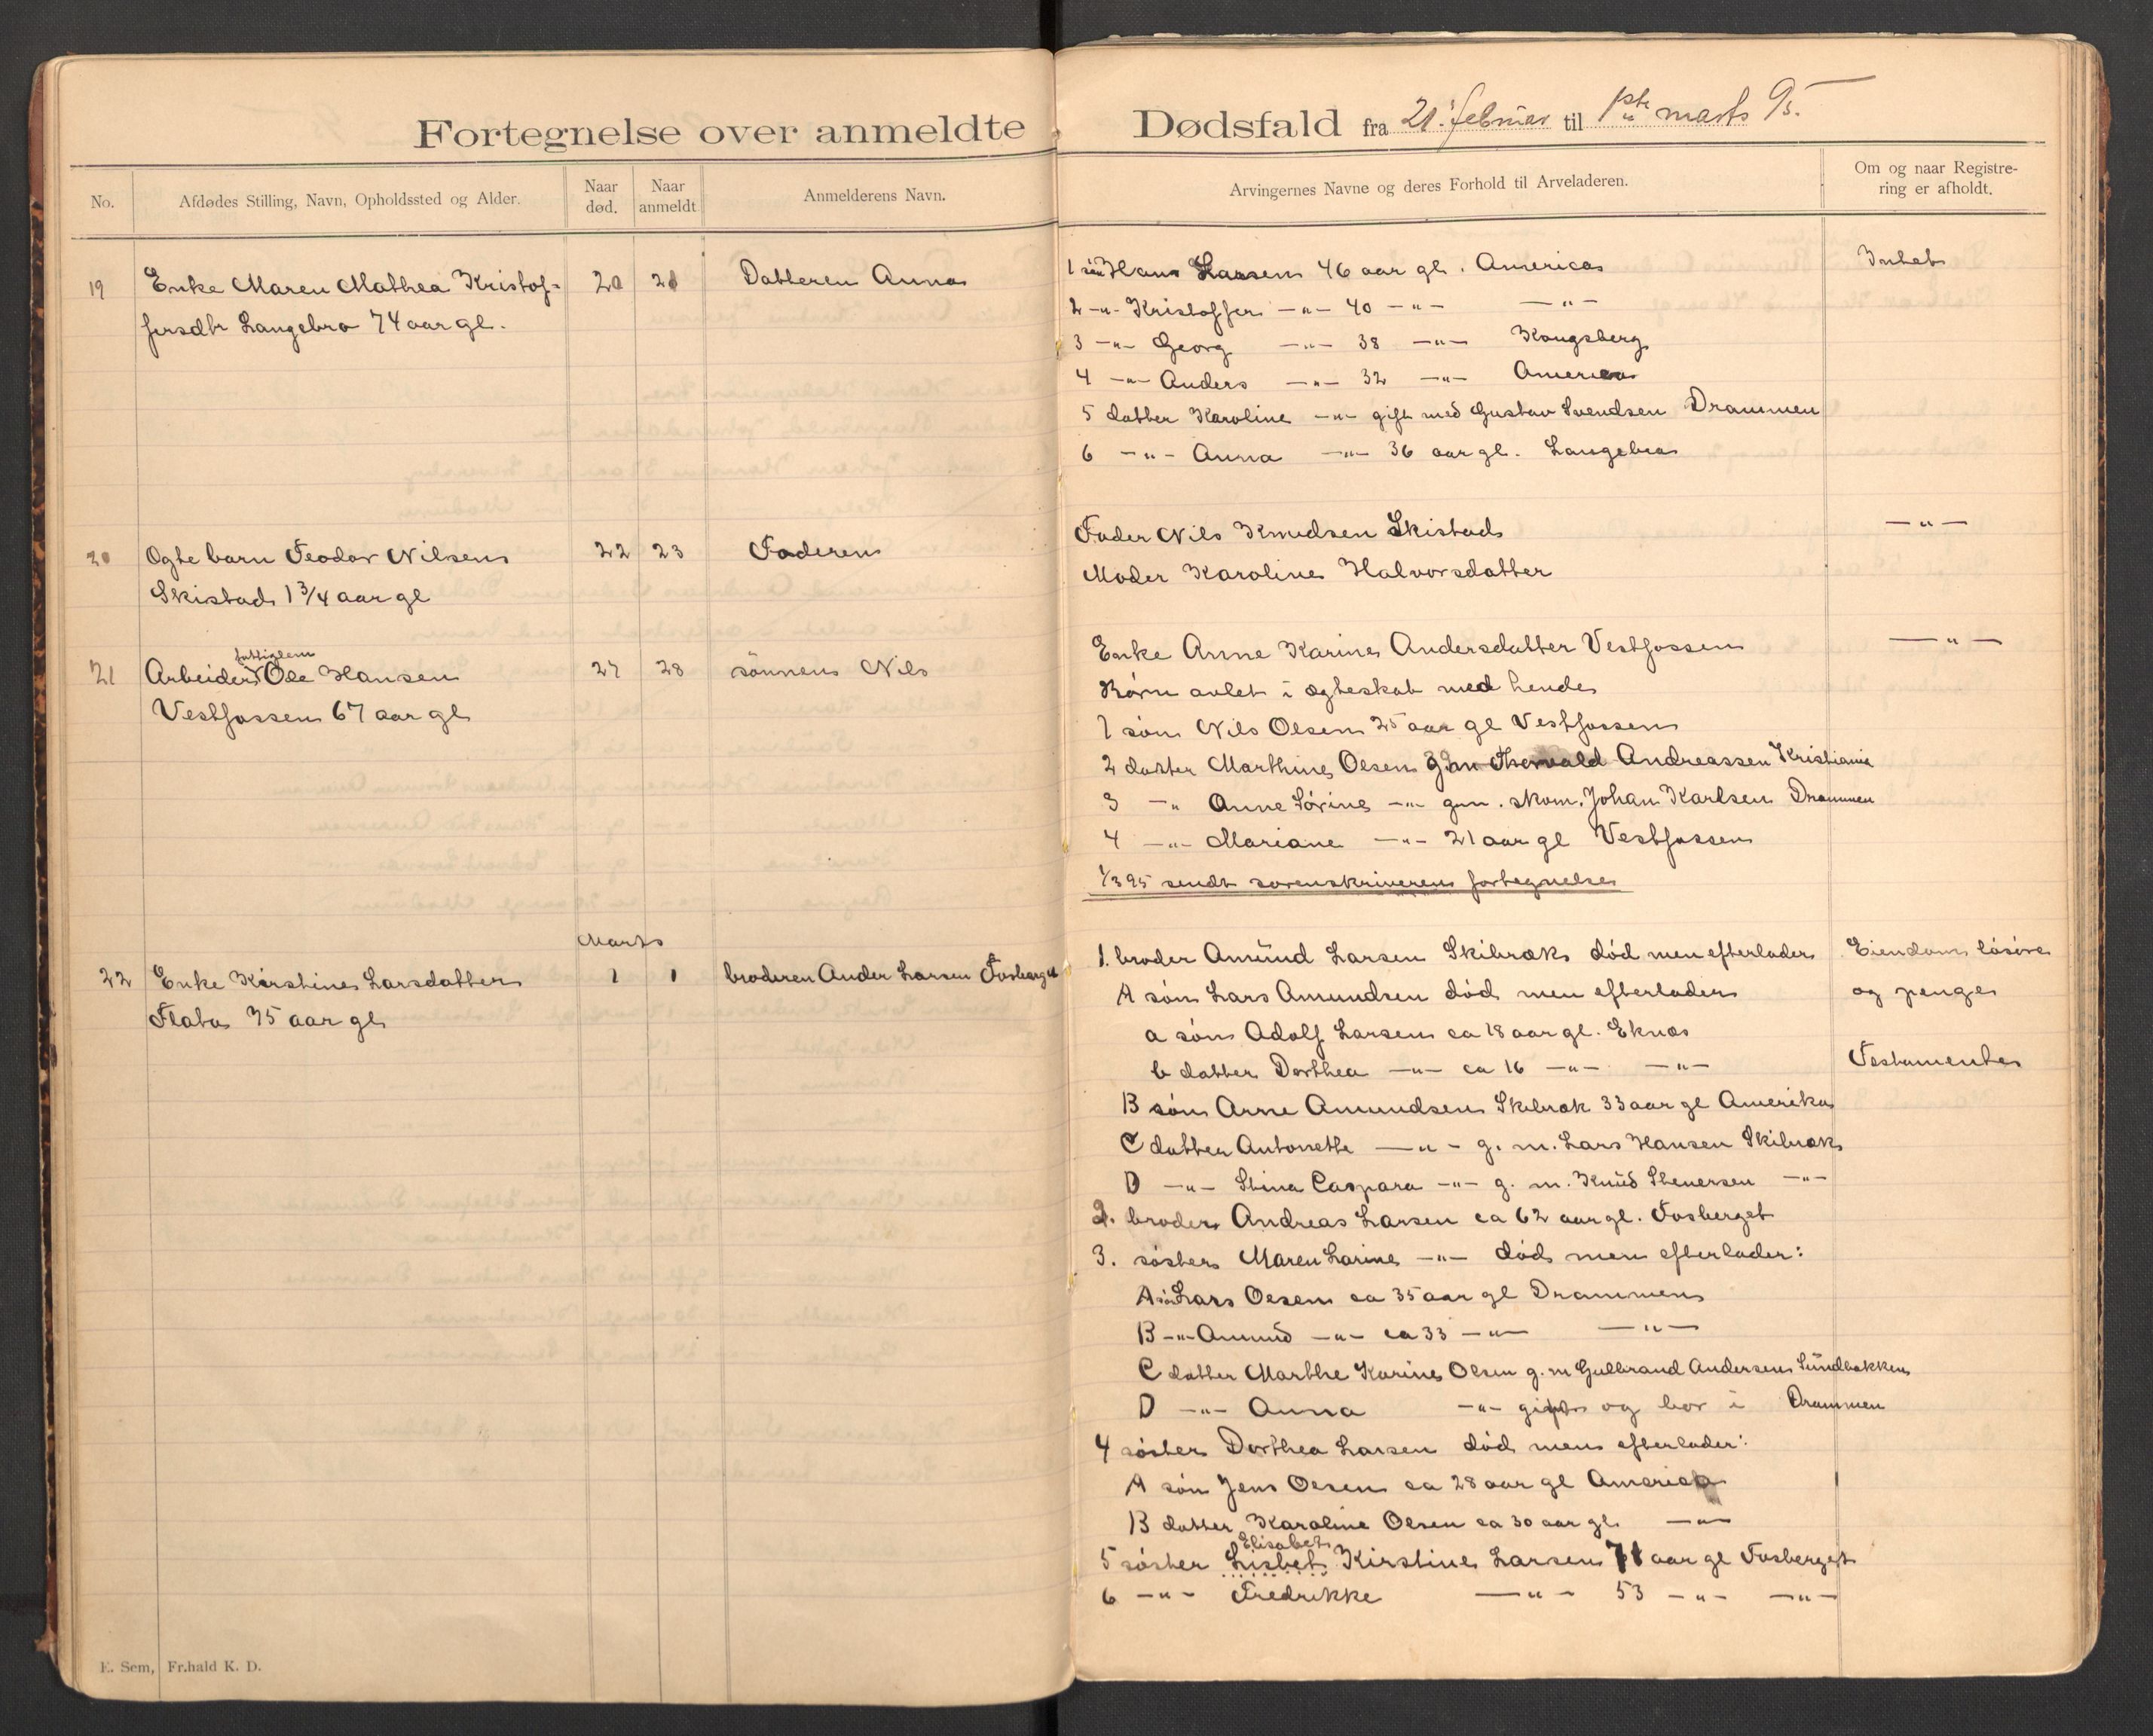 Fortegnelse over anmeldte Dødsfald fra 21. februar til 1ste marts 95.
No.
Afdødes Stilling, Navn, Opholdssted og Alder.
Naar død.
Naar anmeldt.
Anmelderens Navn.
Arvingernes Navne og deres Forhold til Arveladeren.
Om og naar Registrering er afholdt.
19 Enke Maren Mathea Kristof- 20 21 Datteren Anna
fersdtr Langebro 74 aar gl.
1 søn Hans Larsen 46 aar gl. America Intet
2 -"- Kristoffer -"- 40 -"- -"-
3 -"- Georg -"- 38 -"- Kongsberg
4 -"- Anders -"- 32 -"- America
5 datter Karoline -"- gift med Gustav Svendsen Drammen
6 -"- Anna -"- 36 aar gl. Langebro
20 Ægte barn Teodor Nilsen 22 23 Faderen
Skistad 1 3/4 aar gl
Fader Nils Knudsen Skistad -"-
Moder Karoline Halvorsdatter
fattiglem
21 Arbeider Ole Hansen 27 28 sønnen Nils
Vestfossen 67 aar gl
Enke Anne Karine Andersdatter Vestfossen -"-
Børn avlet i ægteskab med hende
1 søn Nils Olsen 25 aar gl Vestfossen
2 datter Marthine Olsen g. m Thorvald Andreassen Kristiania
3 -"- Anne Sørine -"- g m. skom. Johan Karlsen Drammen
4 -"- Mariane -"- 21 aar gl Vestfossen
1/3 95 sendt sorenskriveren fortegnelse
Marts
22 Enke Kirstine Larsdatter 1 1 broderen Ander Larsen Fosberget
Flata 75 aar gl
1. broder Amund Larsen Skibræk død men efterlader Eiendom løsøre
A søn Lars Amundsen død men efterlader og penge
a søn Adolf Larsen ca 18 aar gl. Eknæs
b datter Dorthea -"- ca 16 -"- -"- Testamente
B søn Arne Amundsen Skibræk 33 aar gl Amerika
C datter Antonette -"- g. m. Lars Hansen Skibræk
D -"- Stina Caspara -"- g. m. Knud Stenersen -"-
2. broder Andreas Larsen ca 62 aar gl. Fosberget
3. søster Maren Larine -"- død men efterlader:
A søn Lars Olsen ca 35 aar gl Drammen
B -"- Amund -"- ca 33 -"- -"-
C datter Marthe Karine Olsen g. m Gulbrand Andersen Sundbakken
D -"- Anna -"- gift og bor i Drammen
4 søster Dorthea Larsen død men efterlader:
A søn Jens Olsen ca 28 aar gl America
B datter Karoline Olsen ca 30 aar gl. -"-
Elisabet
5 søster Lisbet Kirstine Larsen 71 aar gl Fosberget
6 -"- Fredrikke -"- 53 -"- -"-
E. Sem, Fr.hald K. D.